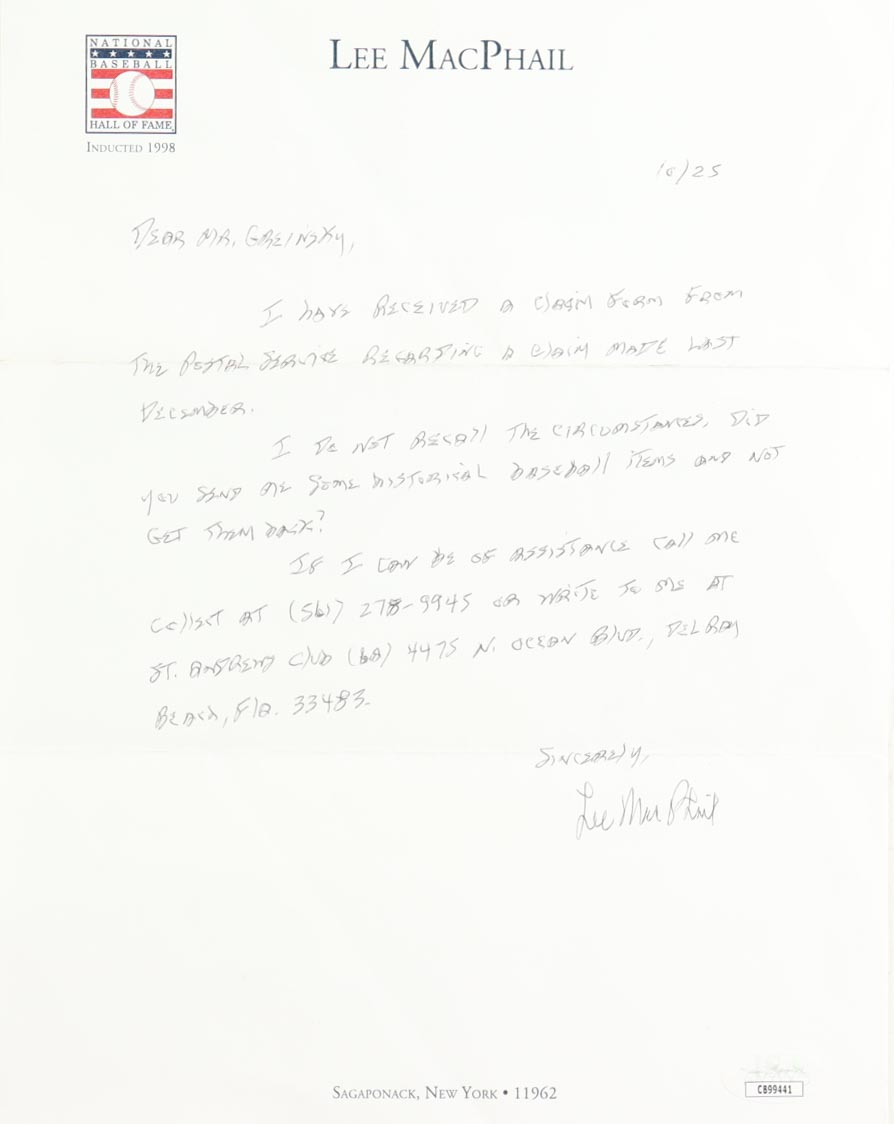 NATIONAL
BASEBALL
HALL OF FAME
INDUCTED 1998
LEE MACPHAIL
10/25
DEAR MR. GREINSKY,
I HAVE RECEIVED A CLAIM FORM FROM
THE POSTAL SERVICE REGARDING A CLAIM MADE LAST
DECEMBER.
I DO NOT RECALL THE CIRCUMSTANCES. DID
YOU SEND ME SOME HISTORICAL BASEBALL ITEMS AND NOT
GET THEM BACK?
IF I CAN BE OF ASSISTANCE CALL ME
COLLECT AT (561) 278-9945 OR WRITE TO ME AT
ST. ANDREWS CLUB 4475 N. OCEAN BLVD., DELRAY
BEACH, FLA. 33483.
SINCERELY,
Lee MacPhail
SAGAPONACK, NEW YORK • 11962
CB99441